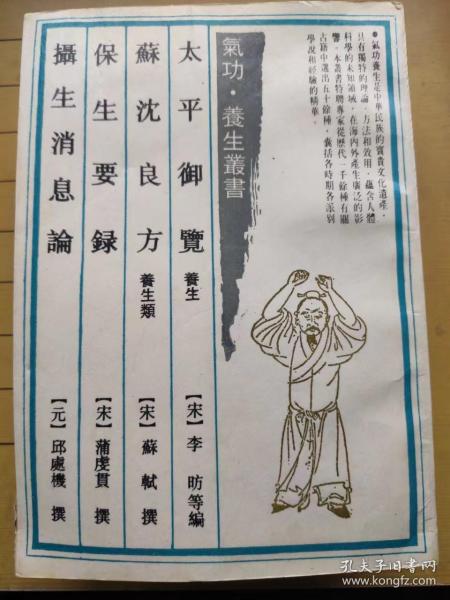 ●氣功養生是中華民族的寶貴文化遺產，
具有獨特的理論、方法和效用，蘊含人體
科學的未知領域，在海内外產生廣泛的影
響。本叢書特聘專家從歷代一千餘種有關
古籍中選出五十餘種，囊括各時期各派别
學說和經驗的精華。
氣功·養生叢書
太平御覽 養生 【宋】李昉等編
蘇沈良方 養生類 【宋】蘇軾撰
保生要録 【宋】蒲虔貫撰
攝生消息論 【元】邱處機撰
孔夫子旧书网
www.kongfz.com